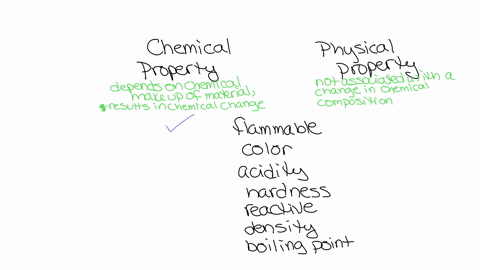 Chemical
Property
depends on chemical
makeup of material,
results in chemical change
Physical
Property
not associated with a
change in chemical
composition
flammable
color
acidity
hardness
reactive
density
boiling point